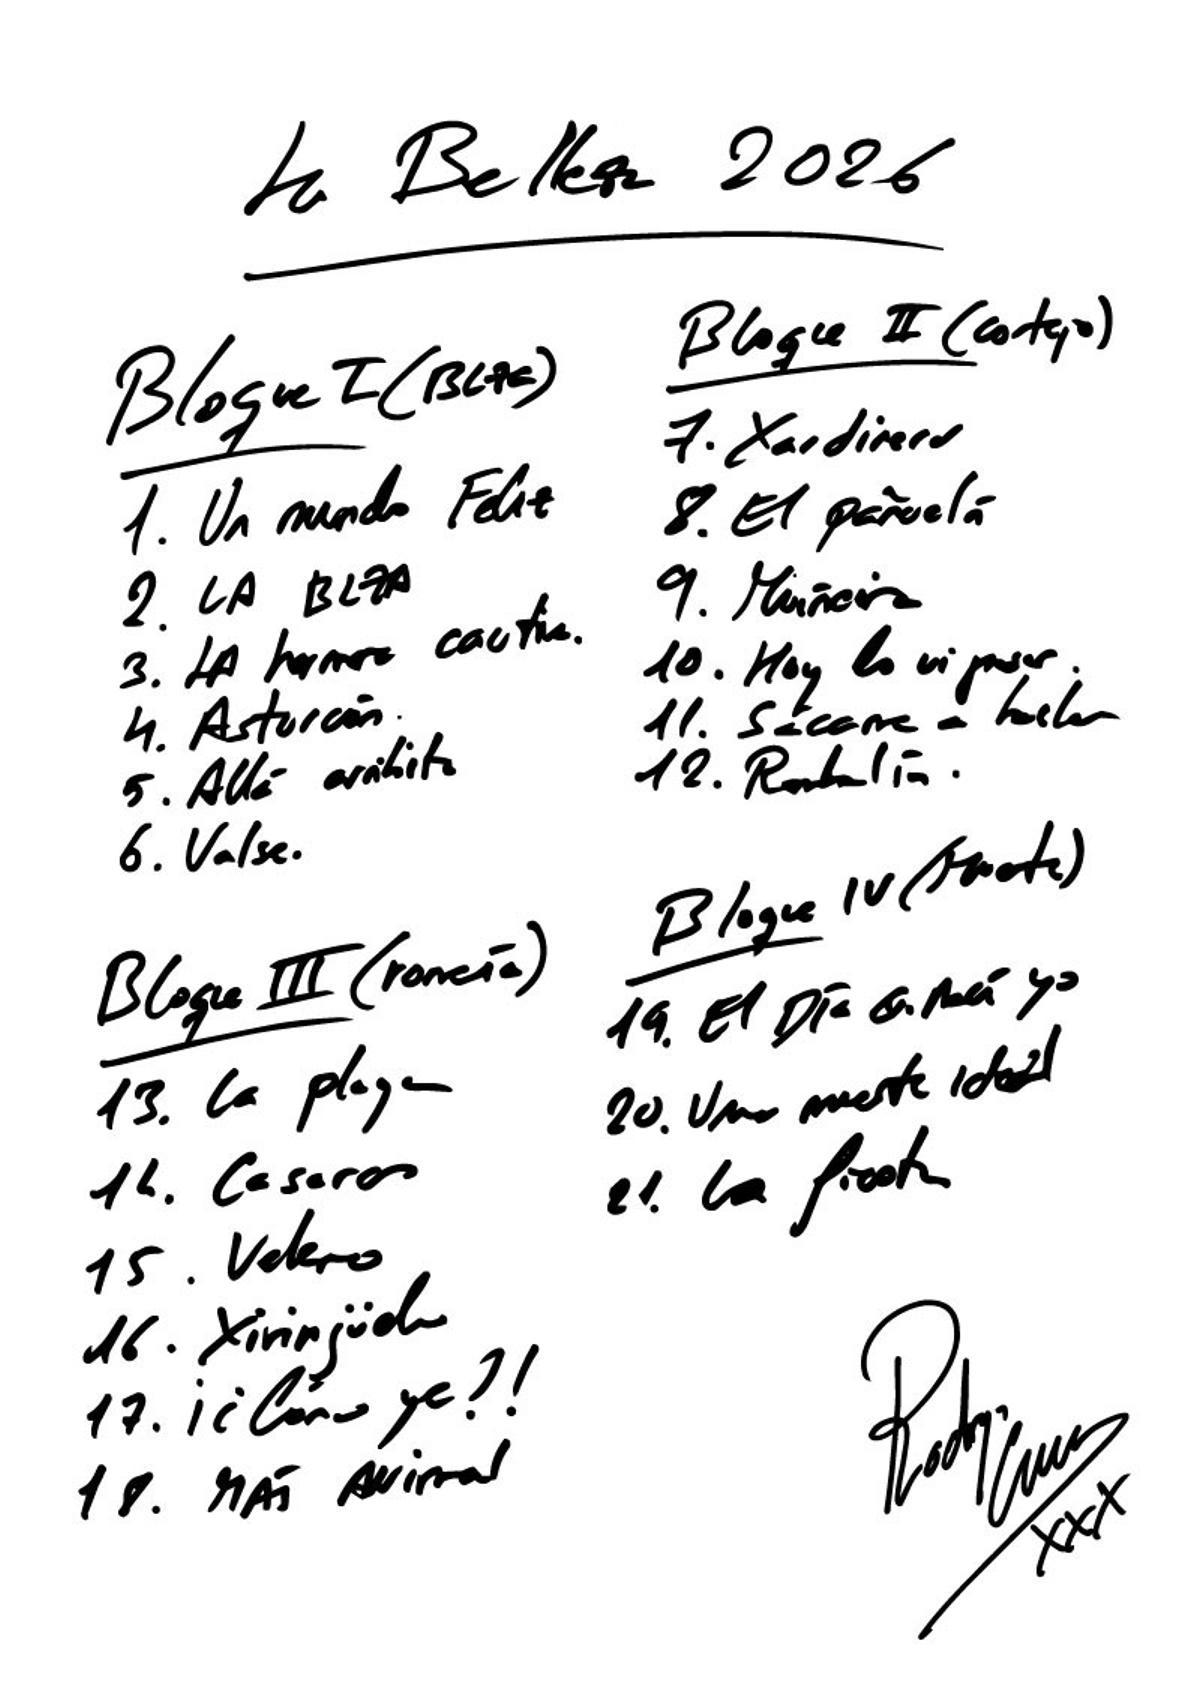 La Belleza 2026
Bloque I (BLZA)
1. Un mundo Feliz
2. LA BLZA
3. LA hermosa cautiva.
4. Asturcón.
5. Allá arribita
6. Valse.
Bloque II (cortejo)
7. Xardineru
8. El pañuelín
9. Muñeira
10. Hoy lo vi pasar.
11. Sácame a bailar
12. Rambalín.
Bloque III (romería)
13. La playa
14. Casaron
15. Veleno
16. Xiringüelu
17. ¡¿Cómo ye?!
18. MÁS ANIMAL
Bloque IV (Muerte)
19. El Día q. nací yo
20. Una muerte ideal
21. La fiesta
Rodrigo Cuevas
xxx